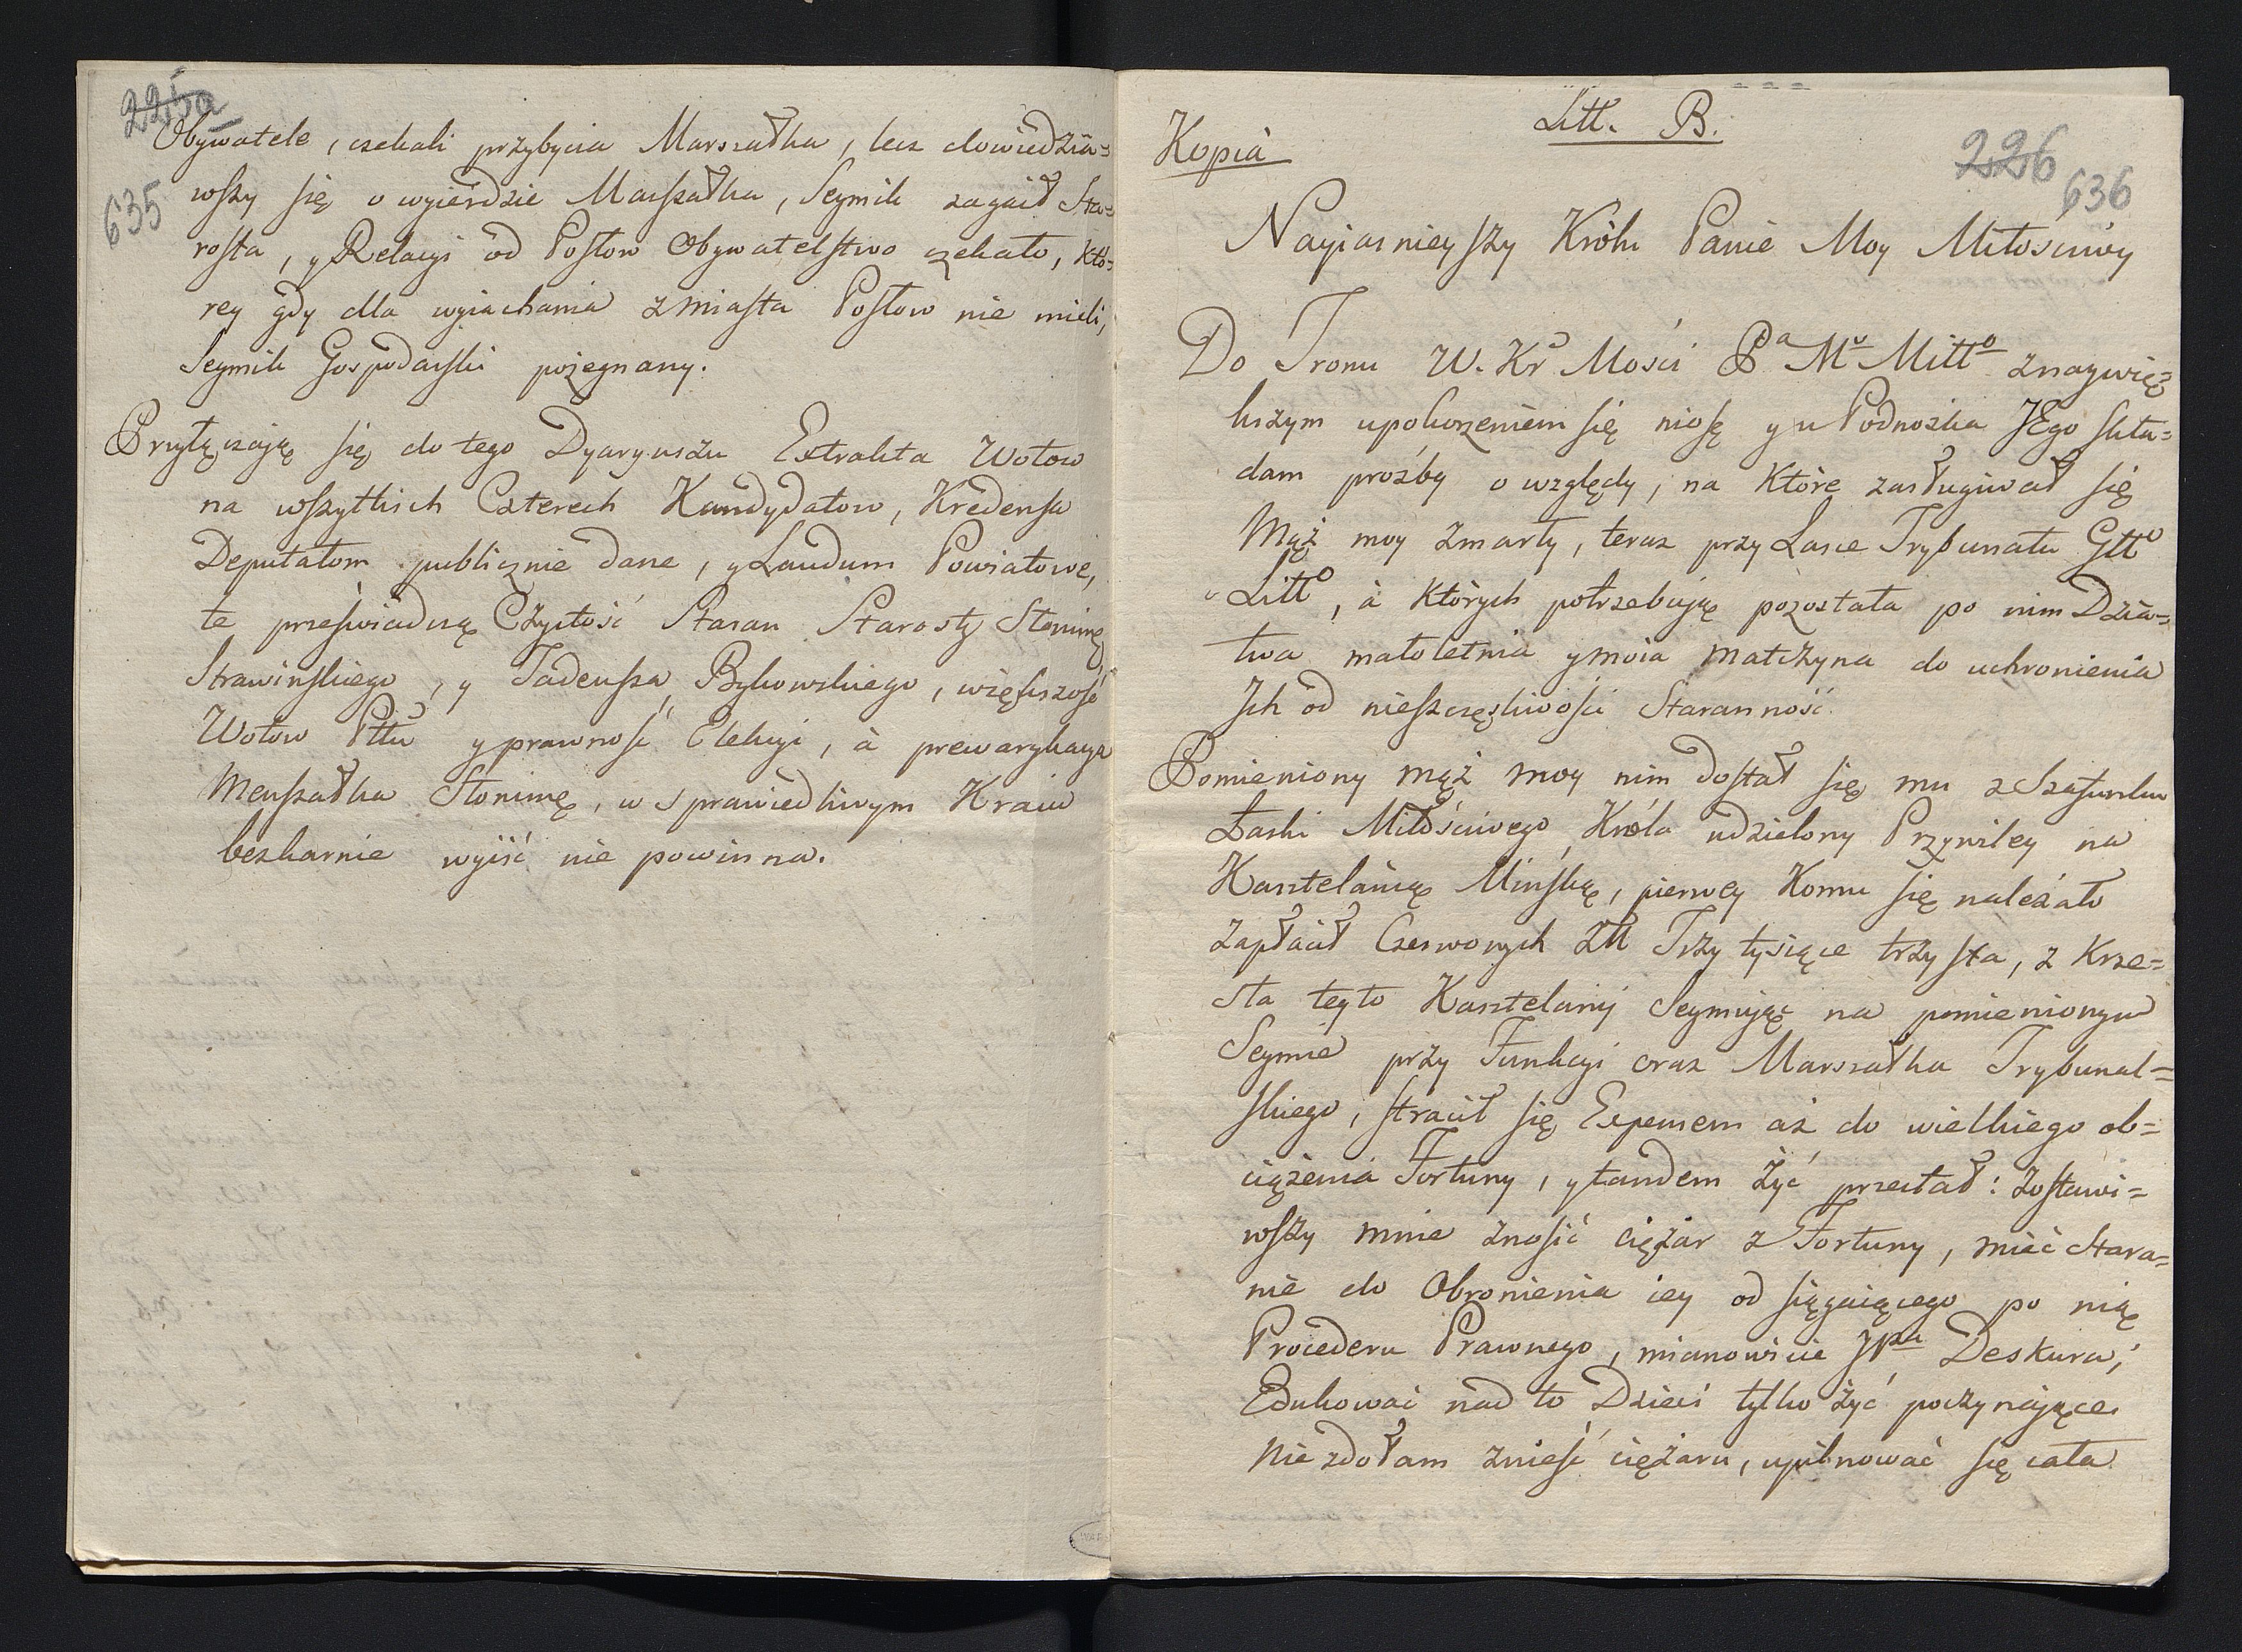 225a
635
Obywatele, czekali przybycia Marszałka, lecz dowiedzia=
wszy się o wyieździe Marszałka, Seymik zagaił Sta=
rosta, y Relacyi od Posłow Obywatelstwo czekało, któ=
rey gdy dla wyiachania z miasta Posłow nie mieli,
Seymik Gospodarski pożegnany.
Przyłączaią się do tego Dyaryuszu Extrakta Wotow
na wszytkich Czterech Kandydatow, Kredensa
Deputatom publicznie dane, y Laudum Powiatowe,
te przeświadczą Czystość Staran Starosty Słonimẹ
Strawinskiego, y Tadeusza Bykowskiego, większość
Wotow Pttu y prawność Elekcyi, à prewarykacya
Marszałka Słonimẹ, w sprawiedliwym Kraiu
bezkarnie wyiść nie powinna.
Litt. B.
Kopia
226
636
Nayiasnieyszy Królu Panie Moy Miłościwy
Do Tronu W. Kr Mości Pa Mo Mitto z naywię=
kszym upokorzeniem się niosę y u Podnożka JEgo skła=
dam proźby o względy, na które zasługiwał się
Mąż moy zmarły, teraz przy Lasce Trybunału Gtto
Litto, à których potrzebuią pozostała po nim Dzia=
twa małoletnia y moia matczyna do uchronienia
Ich od nieszczęśliwości Staranność.
Pomieniony mąż moy nim dostał się mu z Szafunku
Łaski Miłościwego Króla udzielony Przywiley na
Kasztelanią Mińską, pierwey komu się należało
zapłacił Czerwonych Ztt Trzy tysiące trzysta, z Krze=
sła teyto Kasztelanij Seymuiąc na pomienionym
Seymie przy Funkcyi oraz Marszałka Trybunal=
skiego, stracił się Expensem aż do wielkiego ob=
ciążenia Fortuny, y tandem żyć przestał: zostawi=
wszy mnie znosić ciężar z Fortuny, mieć stara=
nie do Obronienia iey od sięgaiącego po nią
Procederu Prawnego, mianowicie JPa Deskura,
Edukować nad to Dzieci tylko żyć poczynaiące.
Nie zdołam znieść ciężaru, upilnować się cała